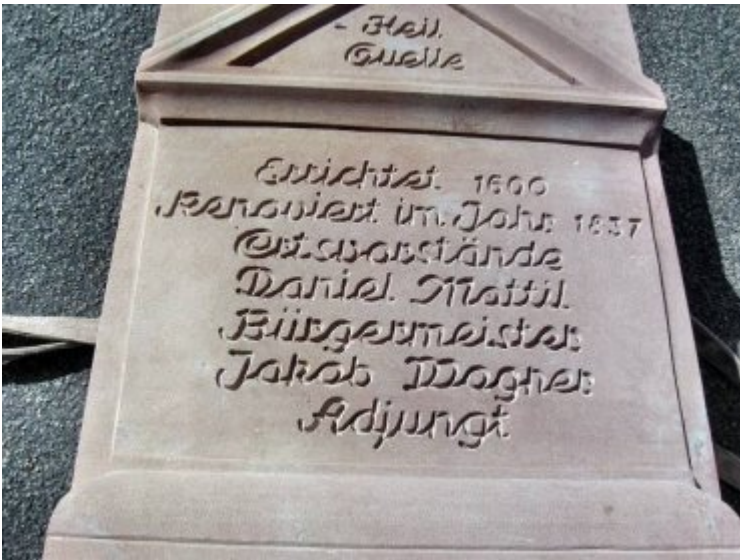 - Heil.
Quelle
Errichtet 1600
Renoviert im Jahr 1837
Ortsvorstände
Daniel Mattil
Bürgermeister
Jakob Wagner
Adjungt